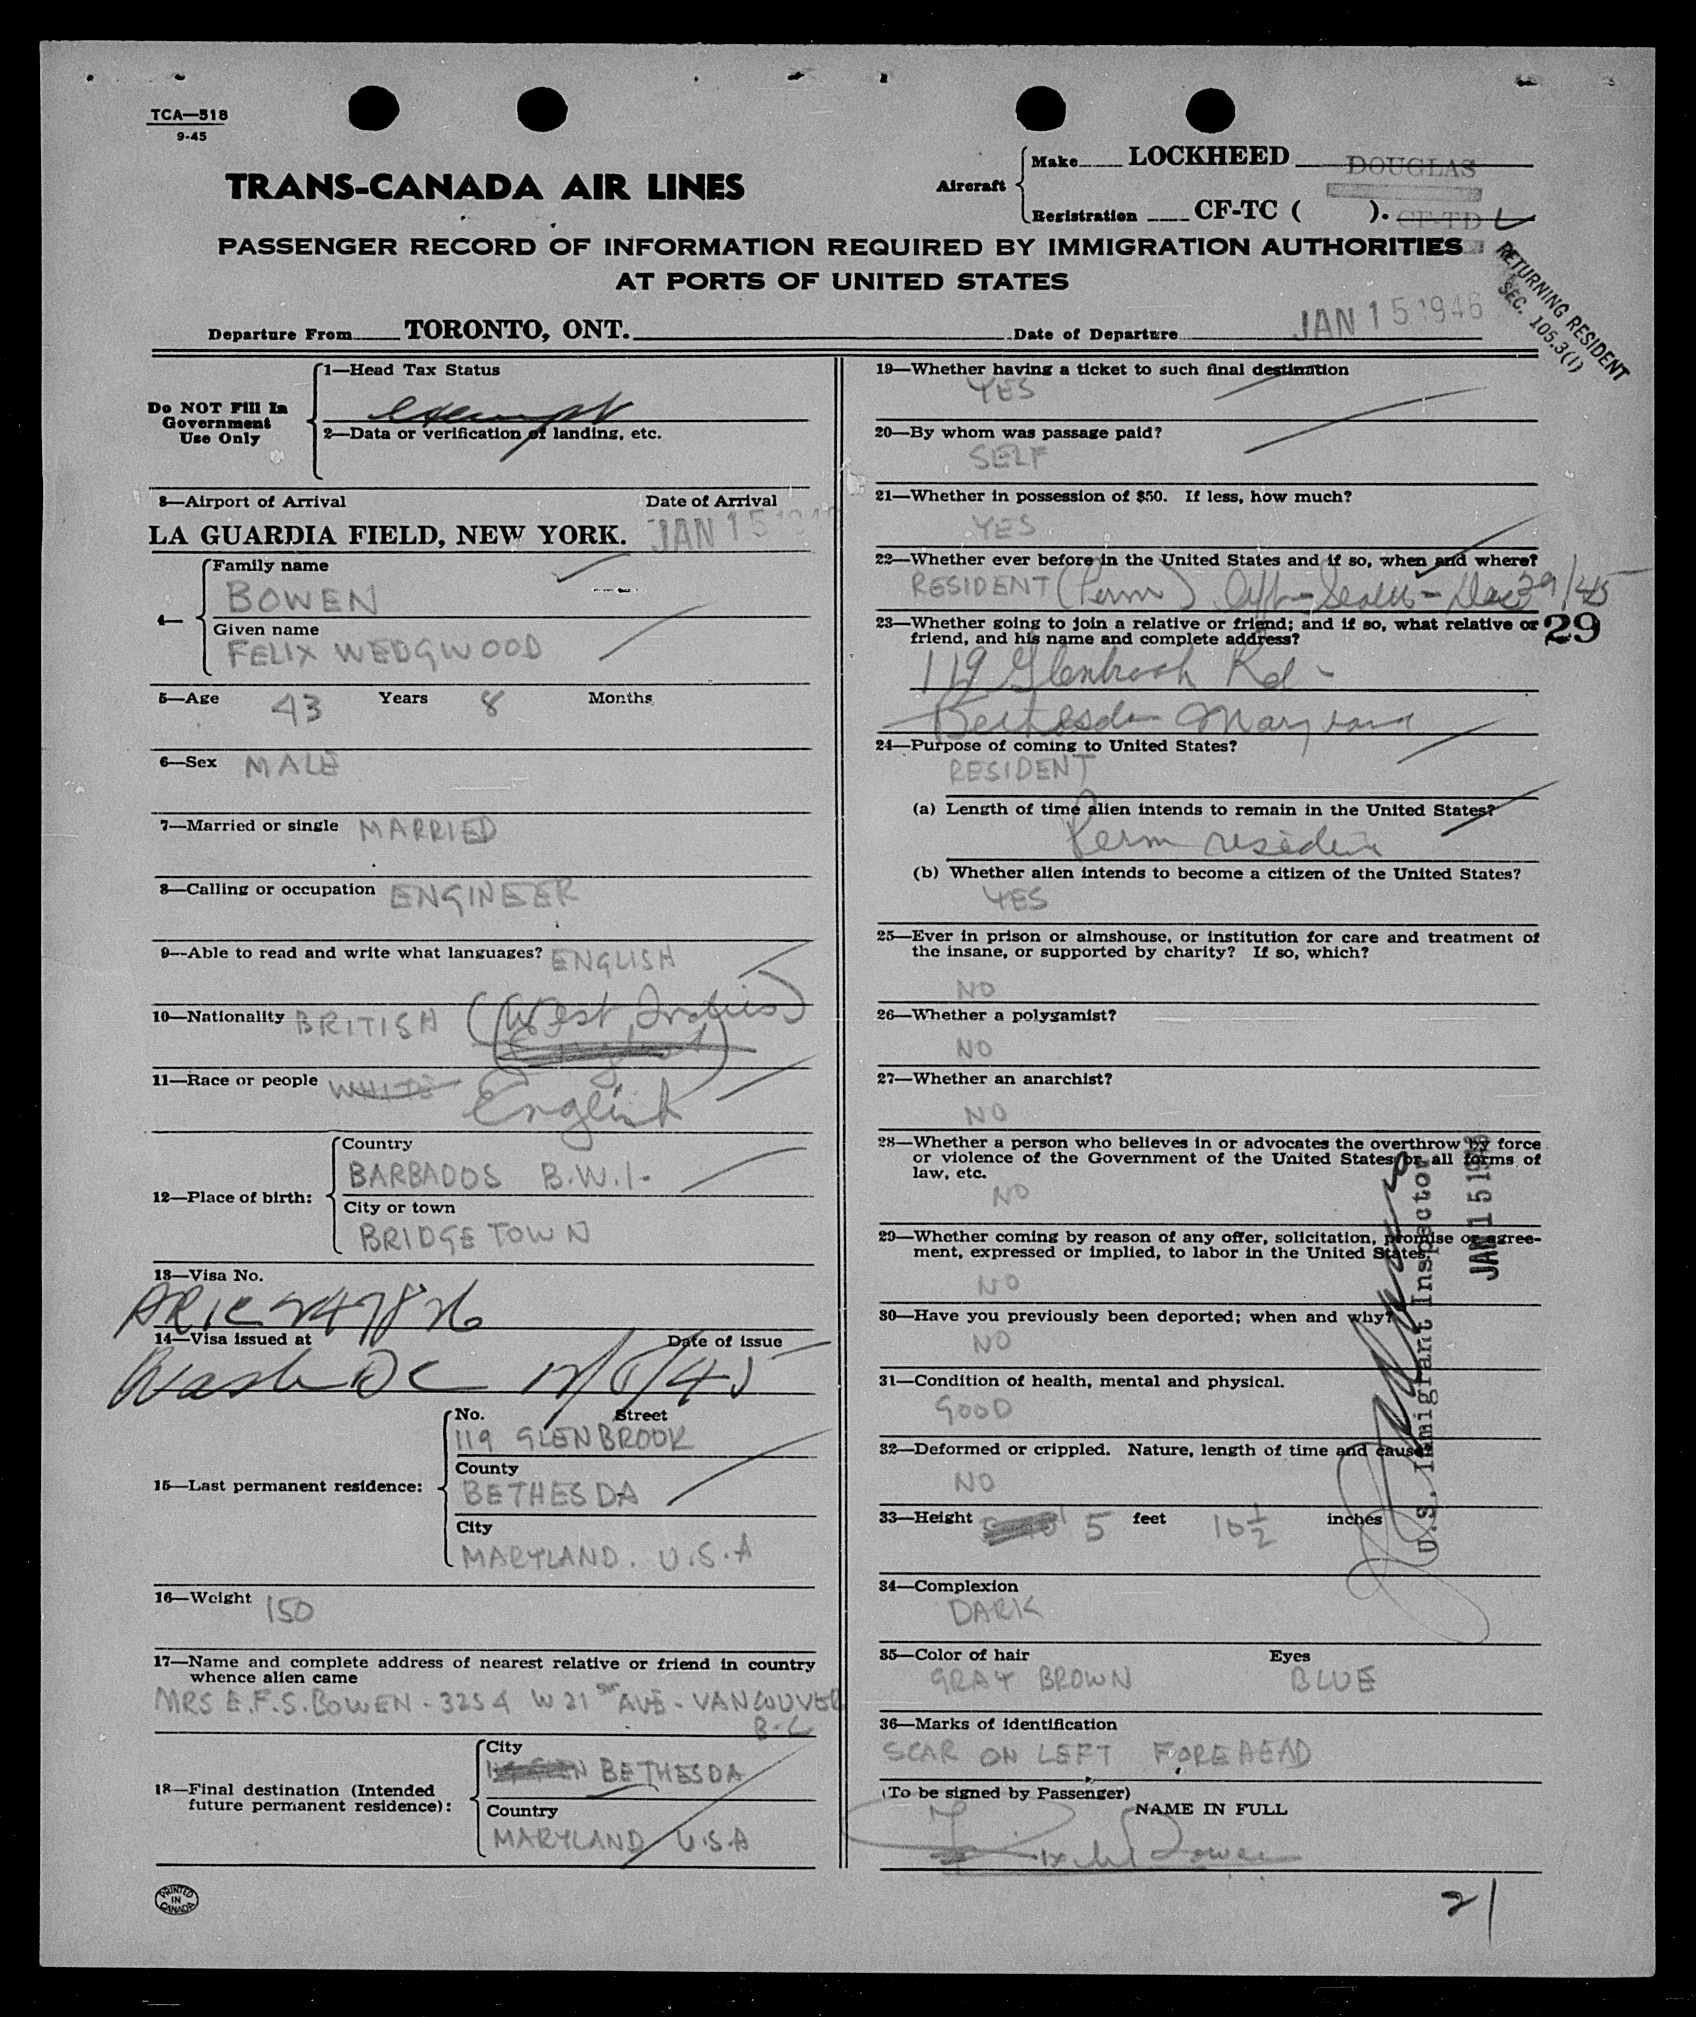 TCA—518
9-45
TRANS-CANADA AIR LINES
Aircraft
Make LOCKHEED DOUGLAS
Registration CF-TC ( ). CF-TD L
PASSENGER RECORD OF INFORMATION REQUIRED BY IMMIGRATION AUTHORITIES
AT PORTS OF UNITED STATES
RETURNING RESIDENT
SEC. 105.3(1)
Departure From TORONTO, ONT. Date of Departure JAN 15 1946
Do NOT Fill In
Government
Use Only
1—Head Tax Status
exempt
2—Data or verification of landing, etc.
3—Airport of Arrival Date of Arrival
LA GUARDIA FIELD, NEW YORK. JAN 15 194
4—
Family name
BOWEN
Given name
FELIX WEDGWOOD
5—Age 43 Years 8 Months
6—Sex MALE
7—Married or single MARRIED
8—Calling or occupation ENGINEER
9—Able to read and write what languages? ENGLISH
10—Nationality BRITISH (West Indies)
(English)
11—Race or people WHITE English
12—Place of birth:
Country
BARBADOS B.W.I.
City or town
BRIDGETOWN
13—Visa No.
14—Visa issued at Date of issue
Wash DC
15—Last permanent residence:
No. Street
119 GLENBROOK
County
BETHESDA
City
MARYLAND. U.S.A
16—Weight 150
17—Name and complete address of nearest relative or friend in country
whence alien came
MRS E.F.S. BOWEN - 3254 W 21 ST AVE - VANCOUVER
B.C
18—Final destination (Intended
future permanent residence):
City
BETHESDA
Country
MARYLAND U.S.A
PRINTED
IN
CANADA
19—Whether having a ticket to such final destination
YES
20—By whom was passage paid?
SELF
21—Whether in possession of $50. If less, how much?
YES
22—Whether ever before in the United States and if so, when and where?
RESIDENT (Perm) Dec 29/45
23—Whether going to join a relative or friend; and if so, what relative or
friend, and his name and complete address?
29
119 Glenbrook Rd -
Bethesda Maryland
24—Purpose of coming to United States?
RESIDENT
(a) Length of time alien intends to remain in the United States?
Perm residence
(b) Whether alien intends to become a citizen of the United States?
YES
25—Ever in prison or almshouse, or institution for care and treatment of
the insane, or supported by charity? If so, which?
NO
26—Whether a polygamist?
NO
27—Whether an anarchist?
NO
28—Whether a person who believes in or advocates the overthrow by force
or violence of the Government of the United States or all forms of
law, etc.
NO
29—Whether coming by reason of any offer, solicitation, promise or agree-
ment, expressed or implied, to labor in the United States.
NO
30—Have you previously been deported; when and why?
NO
31—Condition of health, mental and physical.
GOOD
32—Deformed or crippled. Nature, length of time and cause.
NO
33—Height 5 feet 10 1/2 inches
34—Complexion
DARK
35—Color of hair Eyes
GRAY BROWN BLUE
36—Marks of identification
SCAR ON LEFT FOREHEAD
(To be signed by Passenger)
NAME IN FULL
Felix W Bowen
U.S. Immigrant Inspector
JAN 15 1946
21